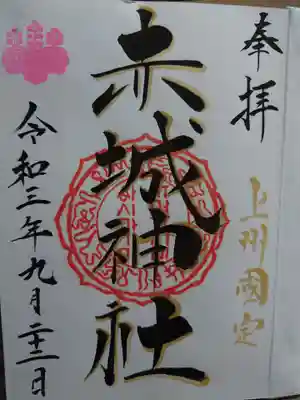 奉拝
上州國定
赤城神社
令和三年九月二十三日